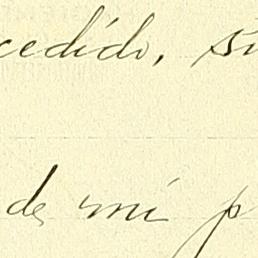 cedido, su
de mi p